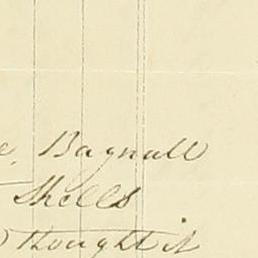 e. Bagnall
Shells
thought it